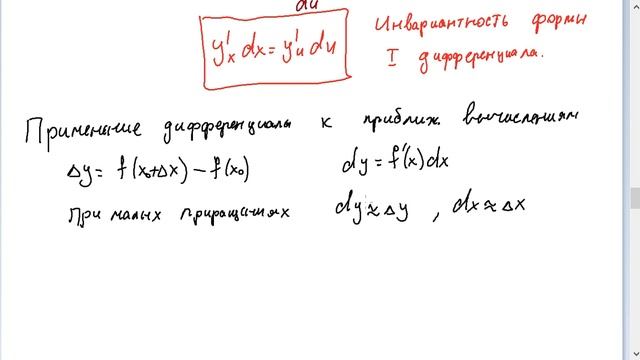 du
y'ₓ dx = y'ᵤ du
Инвариантность формы
I дифференциала.
Применение дифференциала к приближ. вычислениям
Δy = f(x₀+Δx) − f(x₀) dy = f'(x)dx
При малых приращениях dy ≈ Δy , dx ≈ Δx